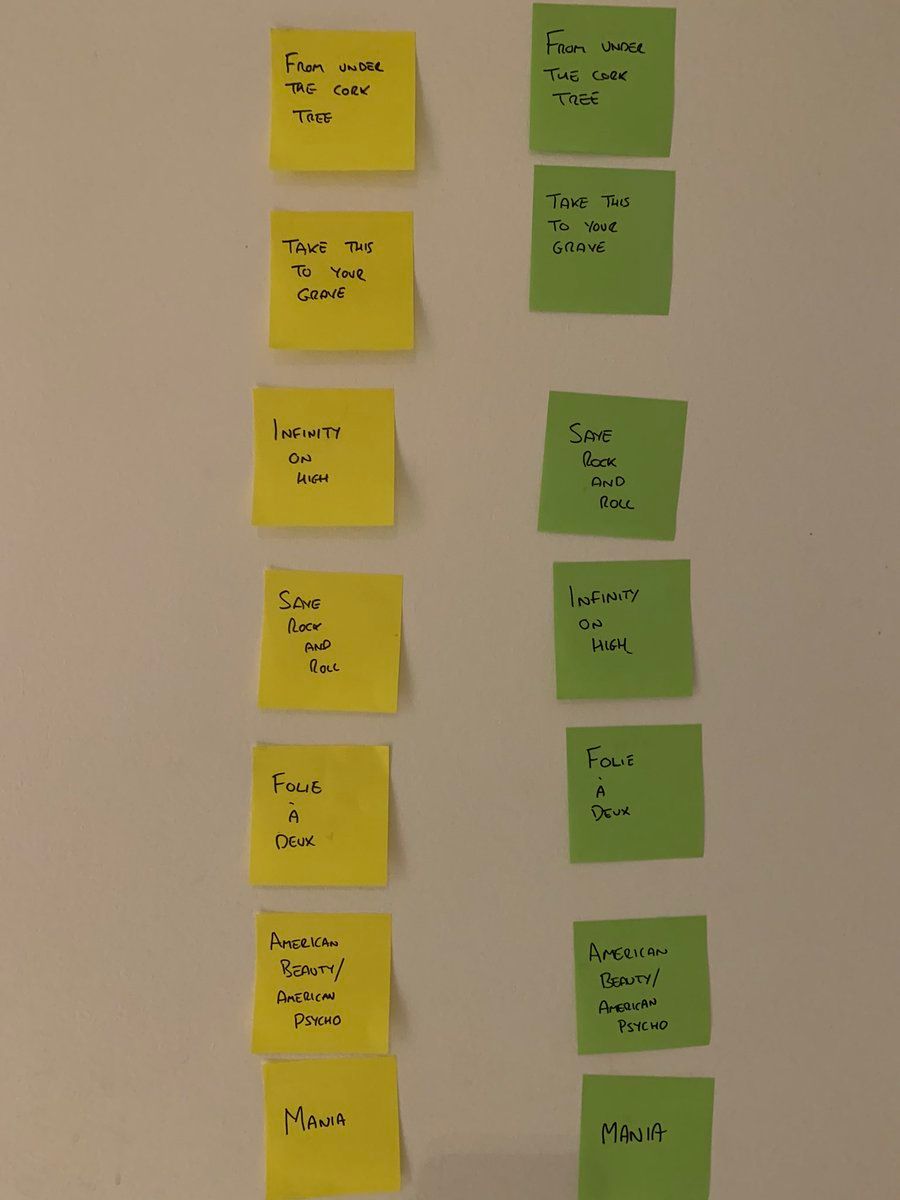 FROM UNDER
THE CORK
TREE
TAKE THIS
TO YOUR
GRAVE
INFINITY
ON
HIGH
SAVE
ROCK
AND
ROLL
FOLIE
À
DEUX
AMERICAN
BEAUTY/
AMERICAN
PSYCHO
MANIA
FROM UNDER
THE CORK
TREE
TAKE THIS
TO YOUR
GRAVE
SAVE
ROCK
AND
ROLL
INFINITY
ON
HIGH
FOLIE
À
DEUX
AMERICAN
BEAUTY/
AMERICAN
PSYCHO
MANIA